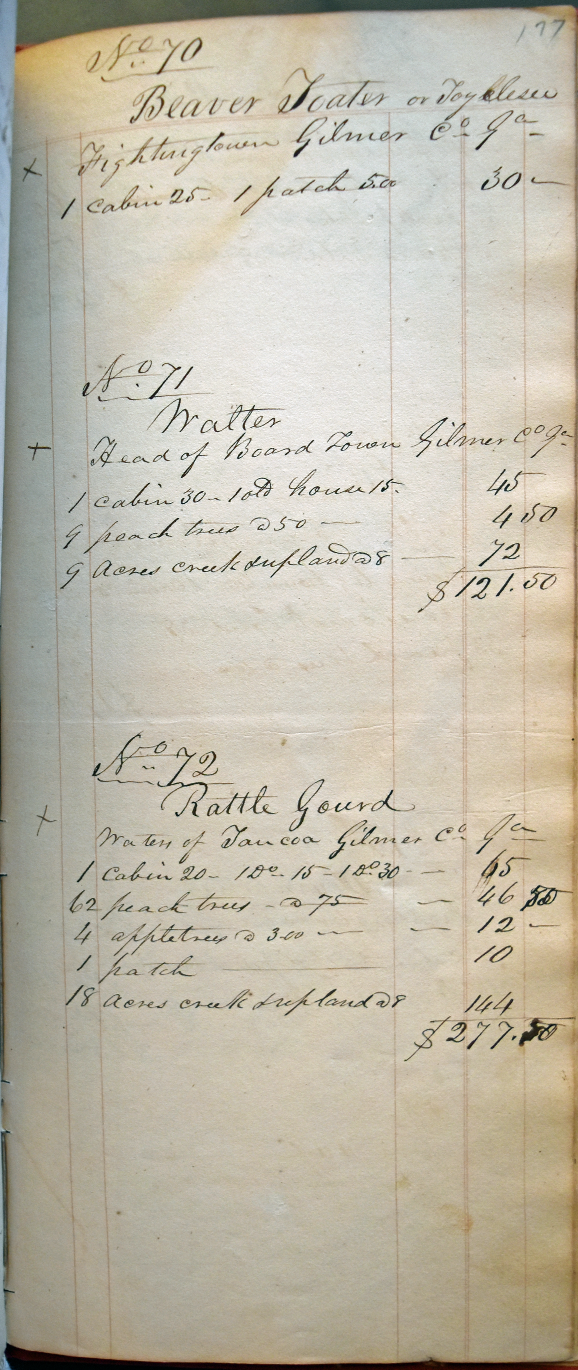 177
No 70
Beaver Toater or Toyelesee
× Fightingtown Gilmer Co Ga
1 cabin 25- 1 patch 500 30 -
No 71
Walter
+ Head of Board Town Gilmer Co Ga
1 cabin 30 - 1 old house 15. 45
9 peach trees @ 50 — 4 50
9 Acres creek & upland @ 8 — 72
$ 121.50
No 72
× Rattle Gourd
Waters of Taucoa Gilmer Co Ga
1 cabin 20 - 1 Do - 15 - 1 Do 30 - — 65
62 peach trees - @ 75 — 46 50
4 appletrees @ 300 — — 12 -
1 patch — 10
18 Acres creek & upland @ 8 144
$ 277.50